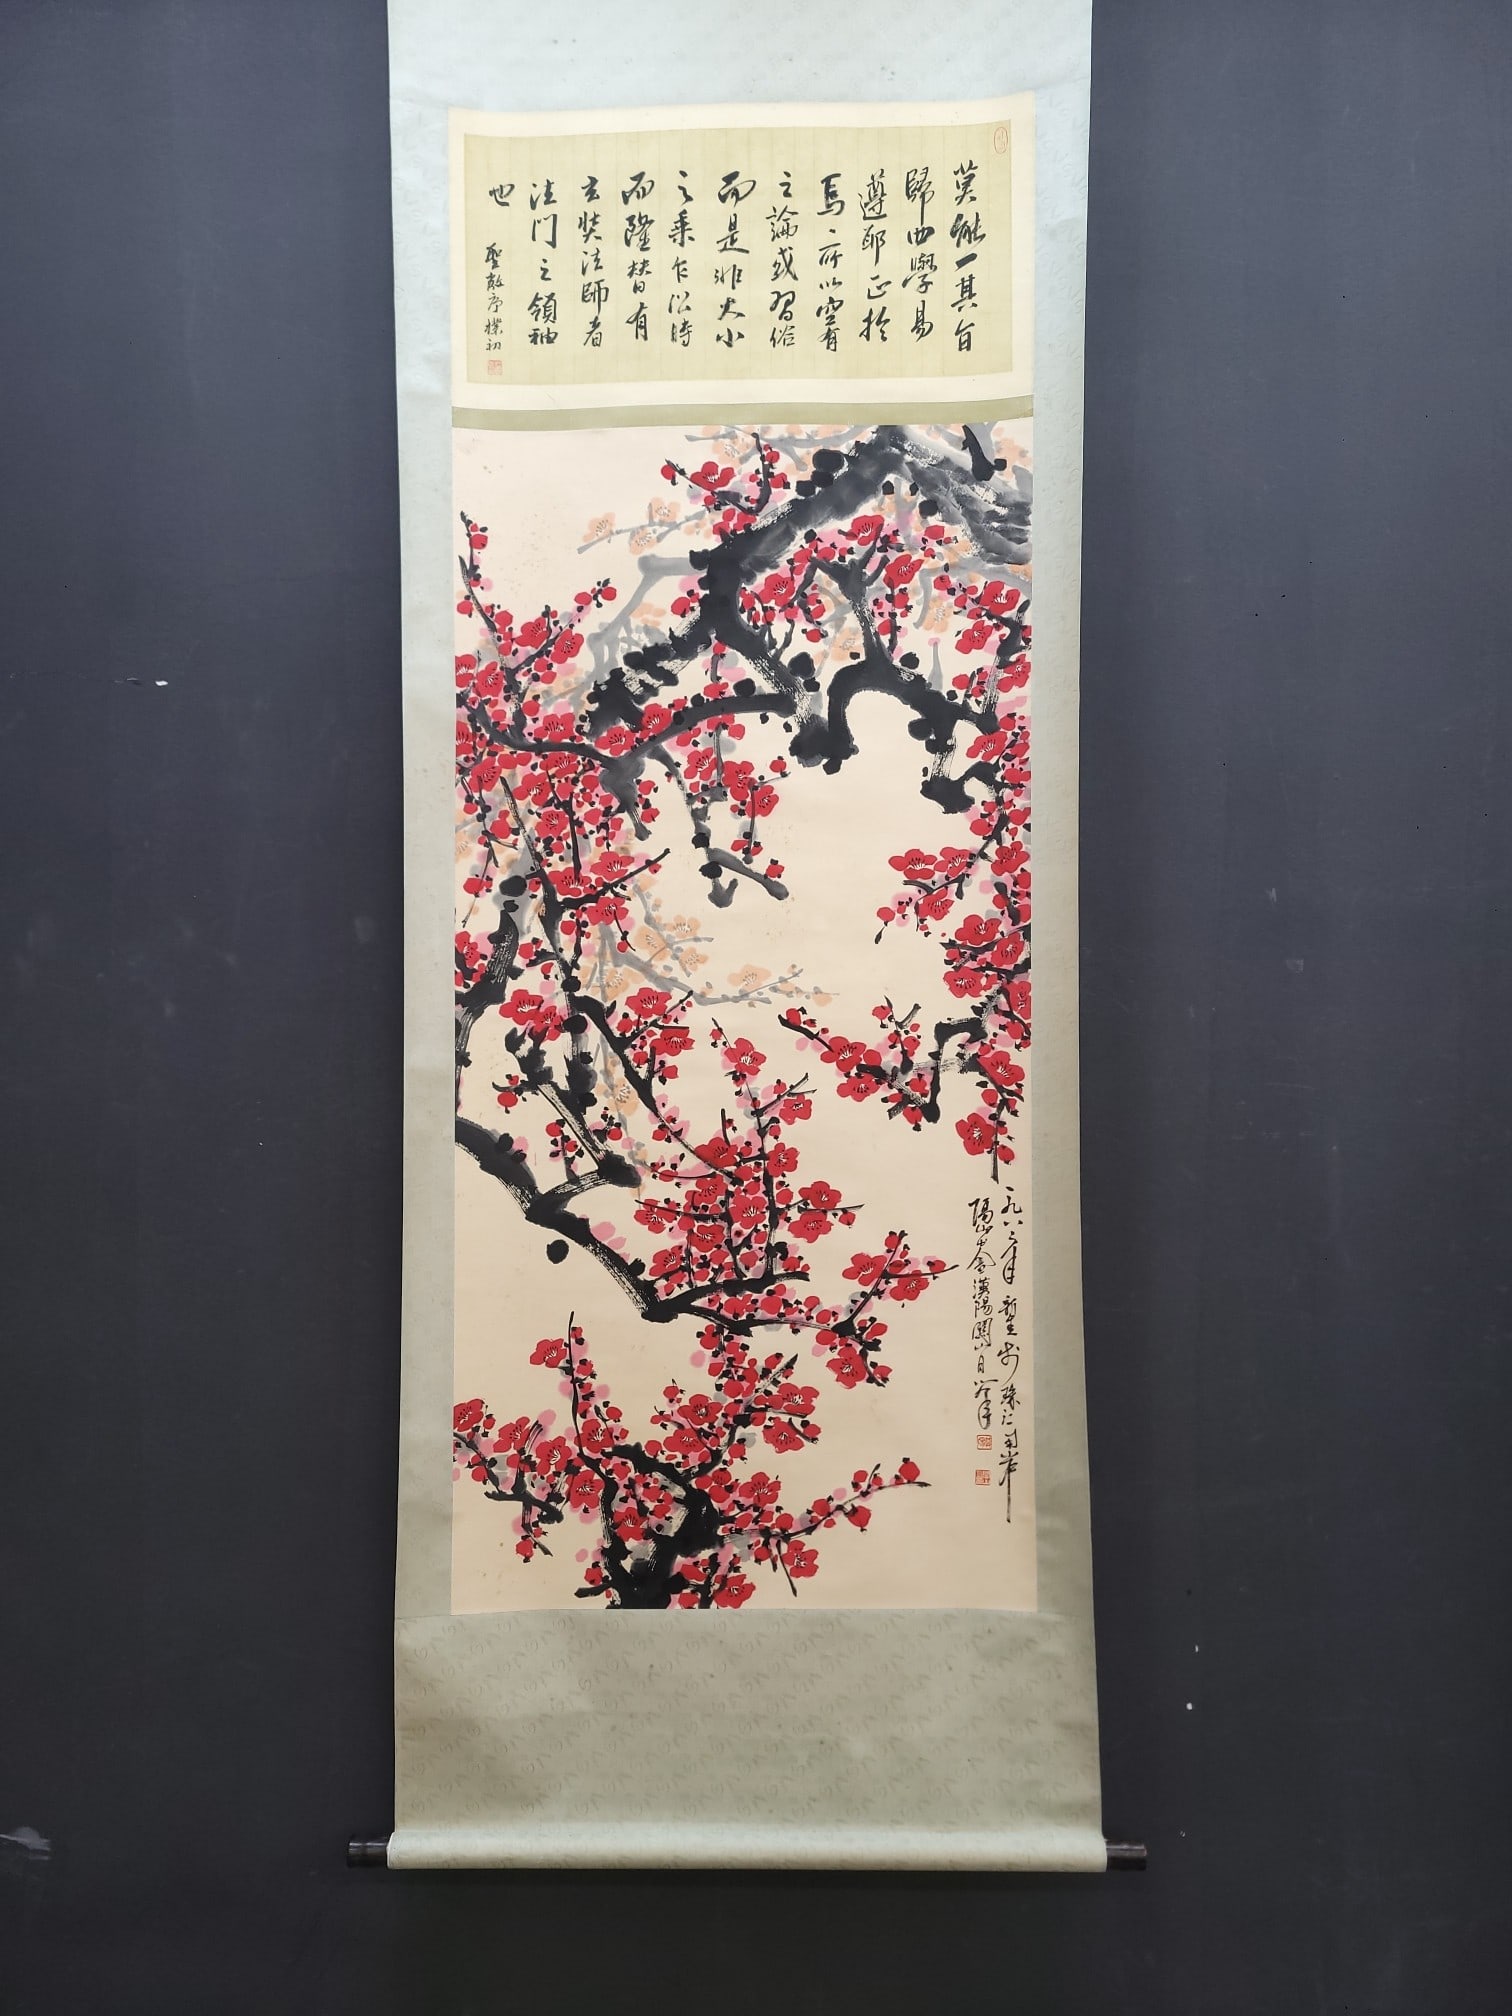 莫能一其旨
歸曲學易
遵邪正於
焉、所以空有
之論或習俗
而是非大小
之乘乍沿時
而隆替有
玄奘法師者
法門之領袖
也
聖教序樸初
一九八 年新春於珠江南岸
隔山書舍漠陽關山月